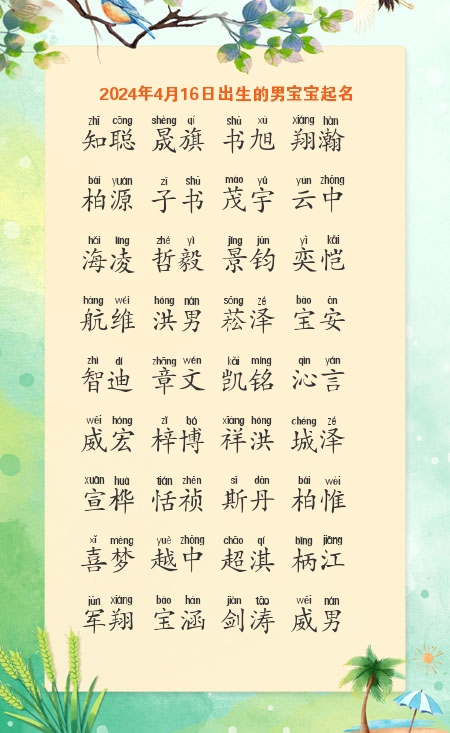 2024年4月16日出生的男宝宝起名
zhī cōng shèng qí shū xù xiáng hàn
知聪 晟旗 书旭 翔瀚
bǎi yuán zǐ shū mào yǔ yún zhōng
柏源 子书 茂宇 云中
hǎi líng zhé yì jǐng jūn yì kǎi
海凌 哲毅 景钧 奕恺
háng wéi hóng nán sōng zé bǎo ān
航维 洪男 菘泽 宝安
zhì dí zhāng wén kǎi míng qìn yán
智迪 章文 凯铭 沁言
wēi hóng zǐ bó xiáng hóng chéng zé
威宏 梓博 祥洪 城泽
xuān huà tián zhēn sī dān bǎi wéi
宣桦 恬祯 斯丹 柏惟
xǐ mèng yuè zhōng chāo qí bǐng jiāng
喜梦 越中 超淇 柄江
jūn xiáng bǎo hán jiàn tāo wēi nán
军翔 宝涵 剑涛 威男